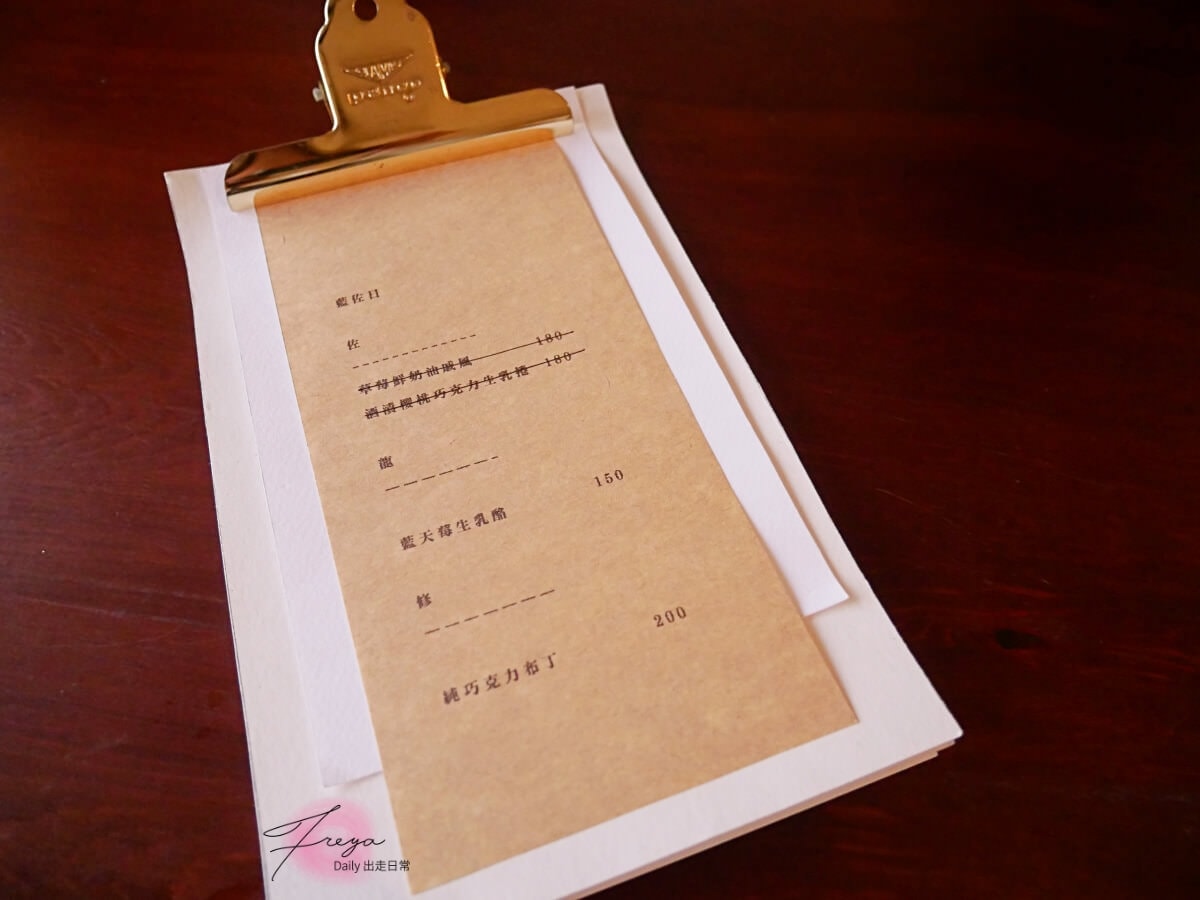 penco
藍佐日
佐
草莓鮮奶油戚風 180
酒漬櫻桃巧克力生乳捲 180
龍
藍天莓生乳酪 150
修
純巧克力布丁 200
Freya
Daily 出走日常